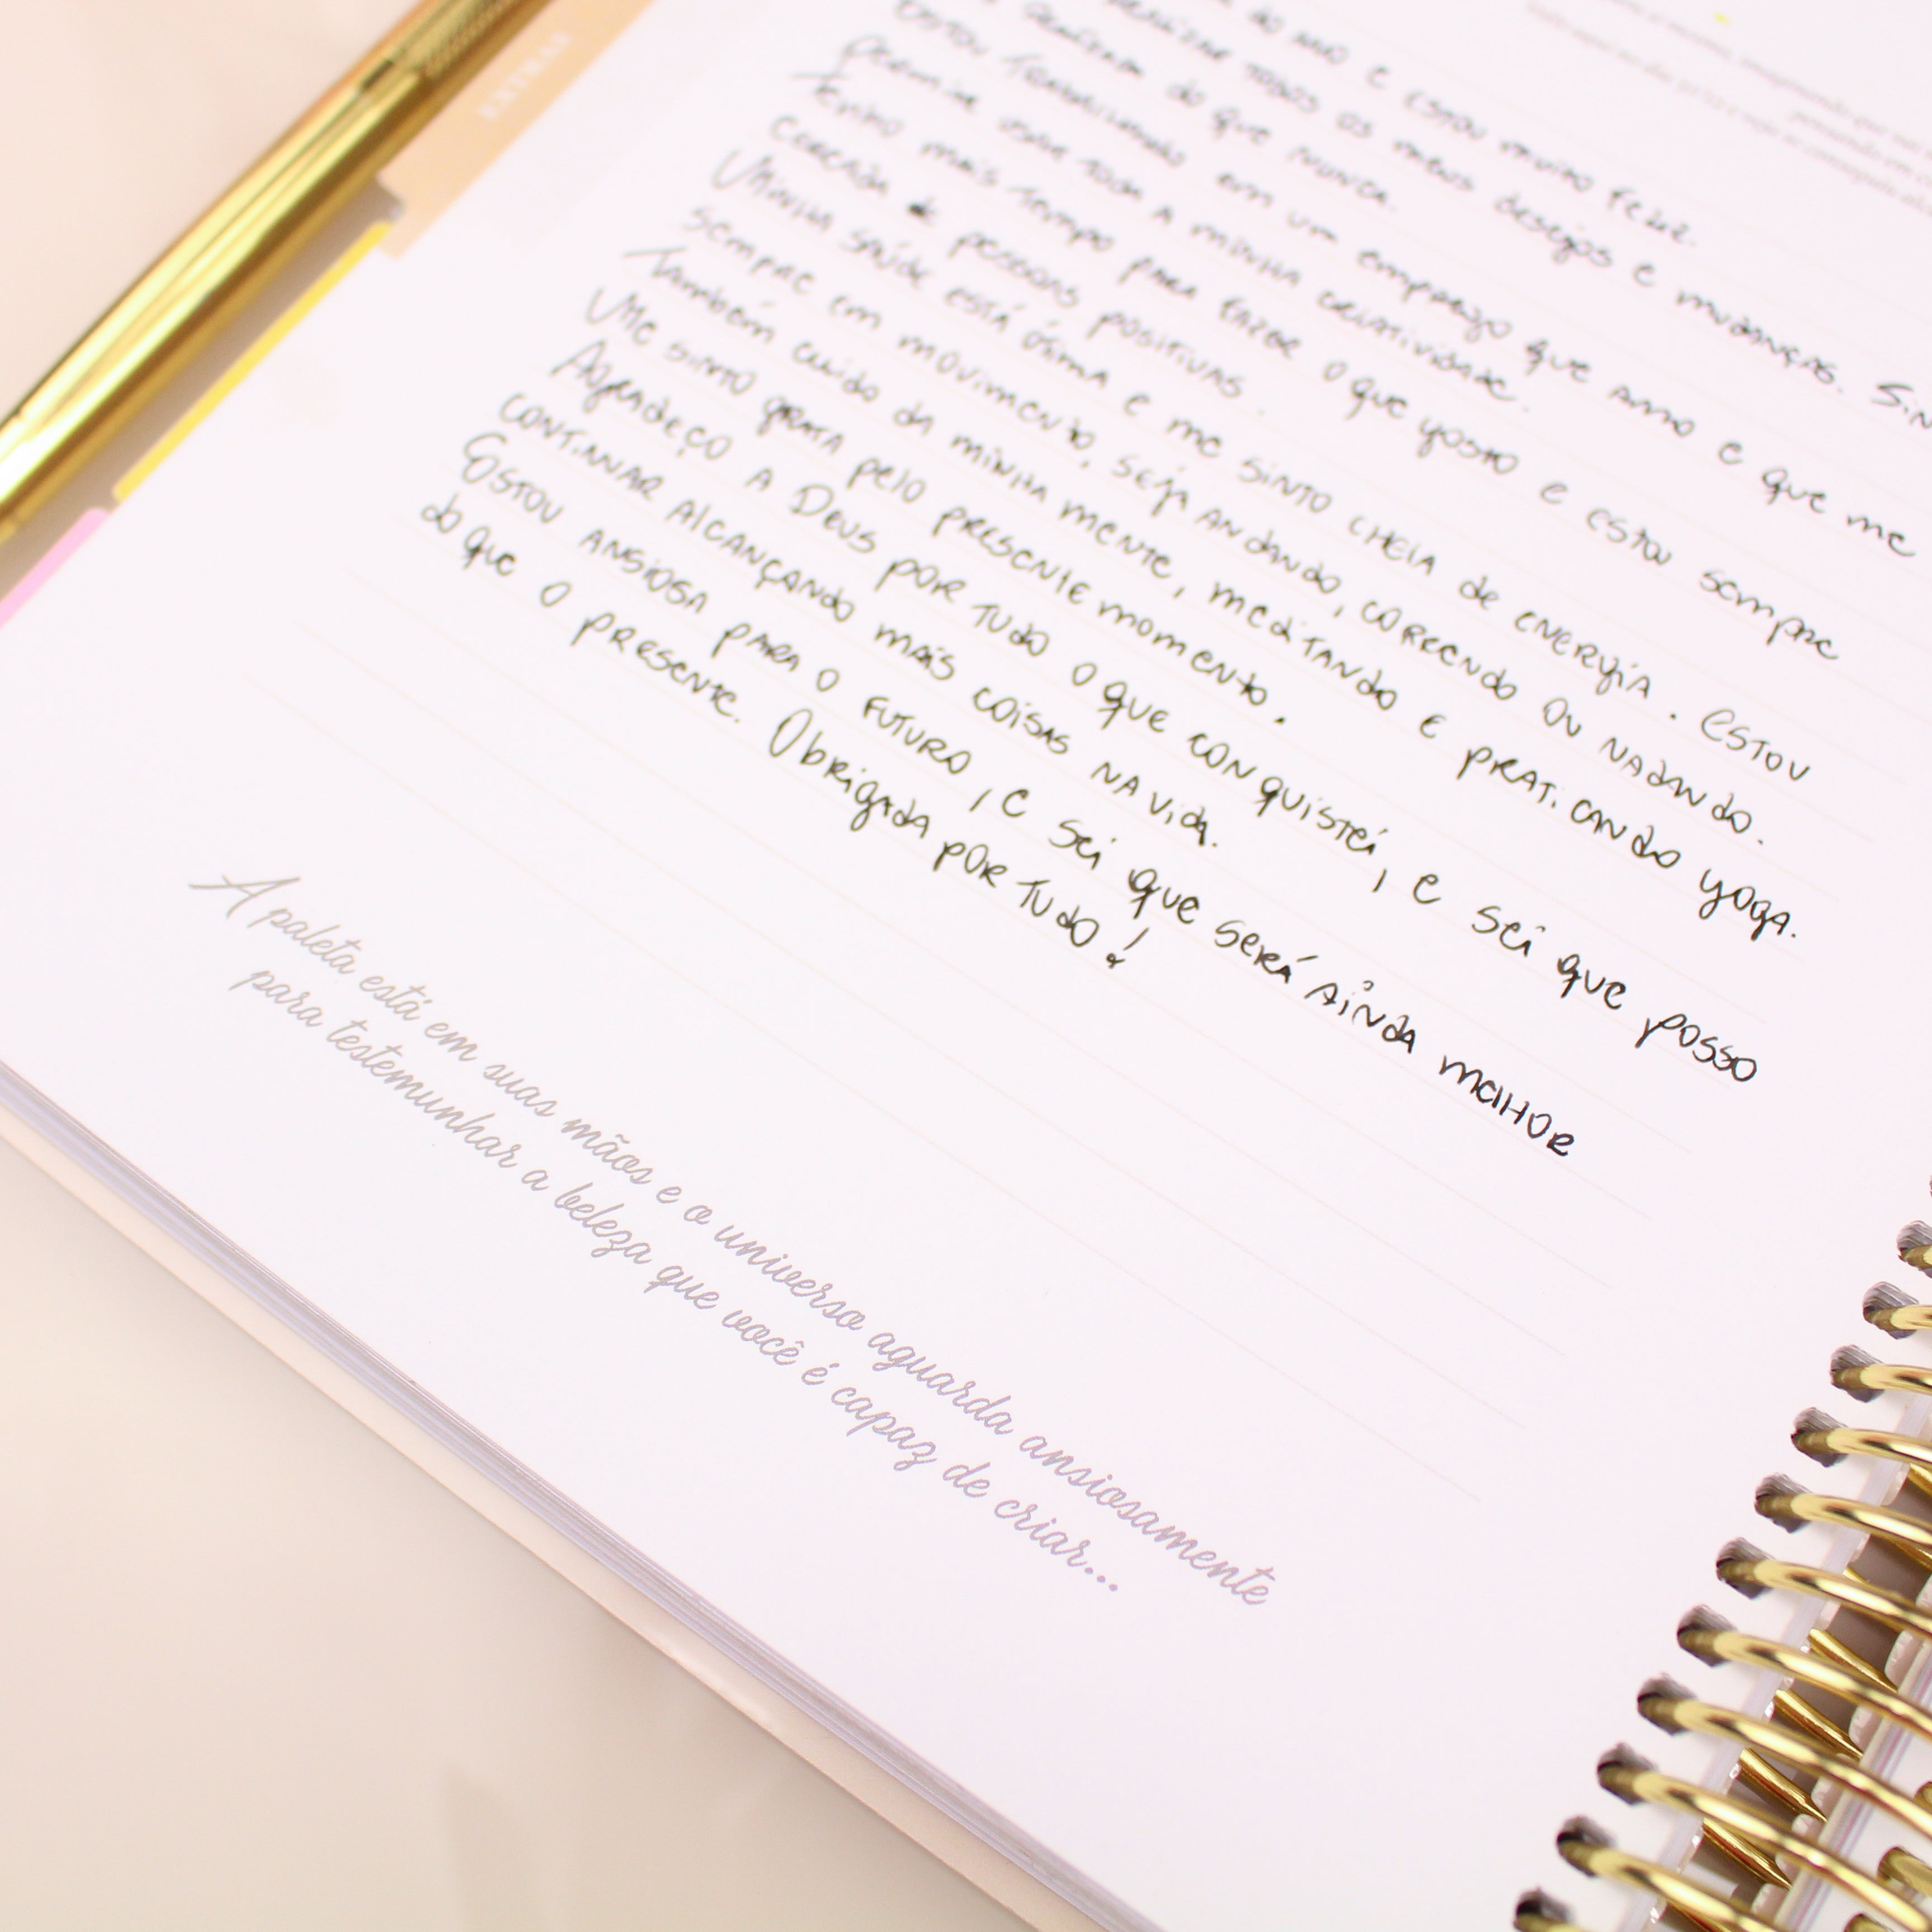 EXTRAS
do ano e estou muito feliz.
realizar todos os meus desejos e mudanças. Sin
do que nunca.
Estou trabalhando em um emprego que amo e que me
permite usar toda a minha criatividade.
Tenho mais tempo para fazer o que gosto e estou sempre
cercada de pessoas positivas.
Minha saúde está ótima e me sinto cheia de energia. Estou
sempre em movimento, seja andando, correndo ou nadando.
Também cuido da minha mente, meditando e praticando yoga.
Me sinto grata pelo presente momento.
Agradeço a Deus por tudo o que conquistei, e sei que posso
continuar alcançando mais coisas na vida.
Estou ansiosa para o futuro, e sei que será ainda melhor
do que o presente. Obrigada por tudo!
A paleta está em suas mãos e o universo aguarda ansiosamente
para testemunhar a beleza que você é capaz de criar...